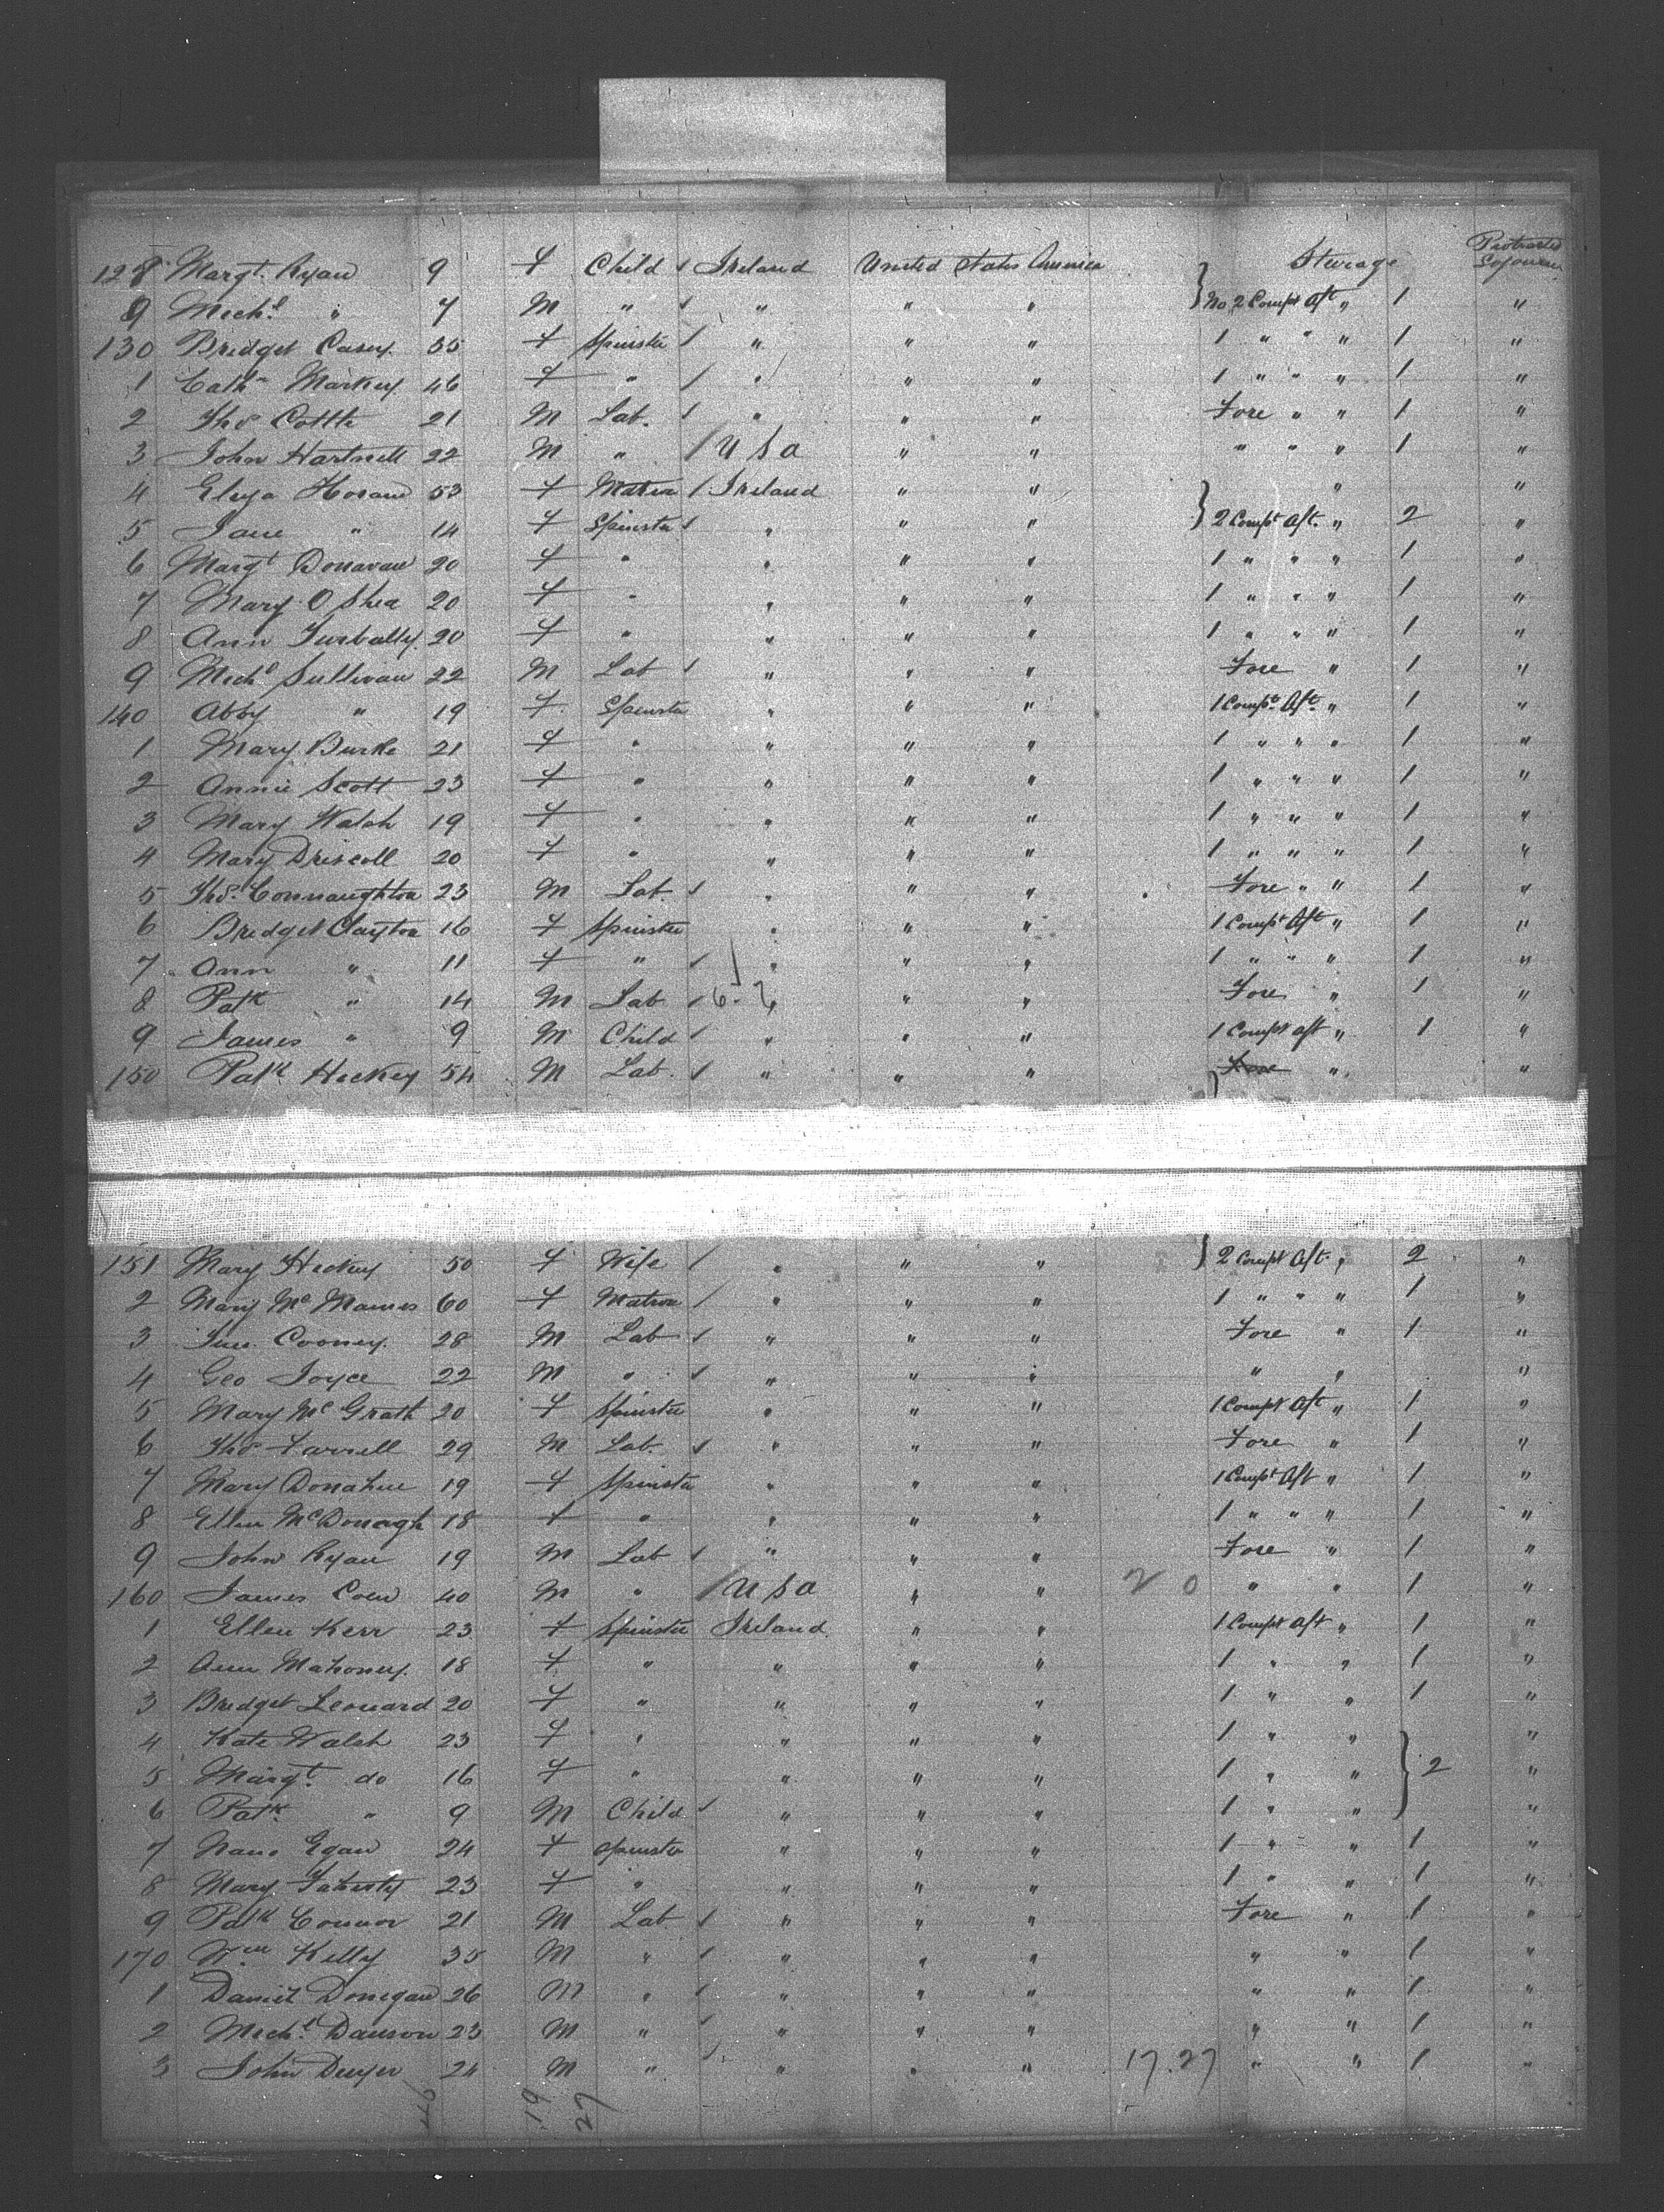 128 Margt. Ryan 9 f Child Ireland United States America Steerage Protracted Sojourn
9 Mich.l " 7 M " " " " No 2 Compt Aft " 1 "
130 Bridget Casey 35 f Spinster " " " 1 " " " 1 "
1 Cath. Markey 46 f " " " " 1 " " " 1 "
2 Thos 21 M Lab. " " " Fore " " 1 "
3 John Hartnell 22 M " U S a " " " " " 1 "
4 Eliza Horan 53 f Matron Ireland " " " "
5 Jane " 14 f Spinster " " " 2 Compt Aft. " 2 "
6 Margt Donavan 20 f " " " " 1 " " " 1 "
7 Mary O Shea 20 f " " " " 1 " " " 1 "
8 Ann Turbally 20 f " " " " 1 " " " 1 "
9 Michl Sullivan 22 M Lab " " " Fore " 1 "
140 Abby " 19 f Spinster " " " 1 Compt Aft. " 1 "
1 Mary Burke 21 f " " " " 1 " " " 1 "
2 Annie Scott 23 f " " " " 1 " " " 1 "
3 Mary Walsh 19 f " " " " 1 " " " 1 "
4 Mary Driscoll 20 f " " " " 1 " " " 1 "
5 Thos. Connaughton 23 M Lab. " " " Fore " " 1 "
6 Bridget Clayton 16 f Spinster " " " 1 Compt Aft " 1 "
7 Ann " 11 f " " " " 1 " " " 1 "
8 Patk " 14 M Lab " " " Fore " 1 "
9 James " 9 M Child " " " 1 Compt aft " 1 "
150 Patk Hickey 54 M Lab. " " " Fore " "
151 Mary Hickey 50 f Wife " " " 2 Compt Aft. " 2 "
2 Mary Mc Manus 60 f Matron " " " 1 " " " 1 "
3 Cooney 28 M Lab " " " Fore " 1 "
4 Geo Joyce 22 M " " " " " " "
5 Mary Mc Grath 20 f Spinster " " " 1 Compt Aft " 1 "
6 Thos Farrell 29 M Lab. " " " Fore " 1 "
7 Mary Donahue 19 f Spinster " " " 1 Compt Aft " 1 "
8 Ellen McDonagh 18 f " " " " 1 " " " 1 "
9 John Ryan 19 M Lab " " " Fore " 1 "
160 James Coen 40 M " U S a " " 2 0 " " 1 "
1 Ellen Kerr 23 f Spinster Ireland " " 1 Compt Aft " 1 "
2 Ann Mahoney 18 f " " " " 1 " " 1 "
3 Bridget Leonard 20 f " " " " 1 " " 1 "
4 Kate Walsh 23 f " " " " 1 " " "
5 Margt. do 16 f " " " " 1 " " 2 "
6 Patk. " 9 M Child " " " 1 " " "
7 Nano Egan 24 f Spinster " " " 1 " " 1 "
8 Mary Faherty 23 f " " " " 1 " " 1 "
9 Patk Connor 21 M Lab " " " Fore " 1 "
170 Wm Kelly 35 M " " " " " " 1 "
1 Daniel Donegan 26 M " " " " " " 1 "
2 Mich.l Dawson 23 M " " " " " " 1 "
3 John Dwyer 24 M " " " " 17.27 " " 1 "
19
27